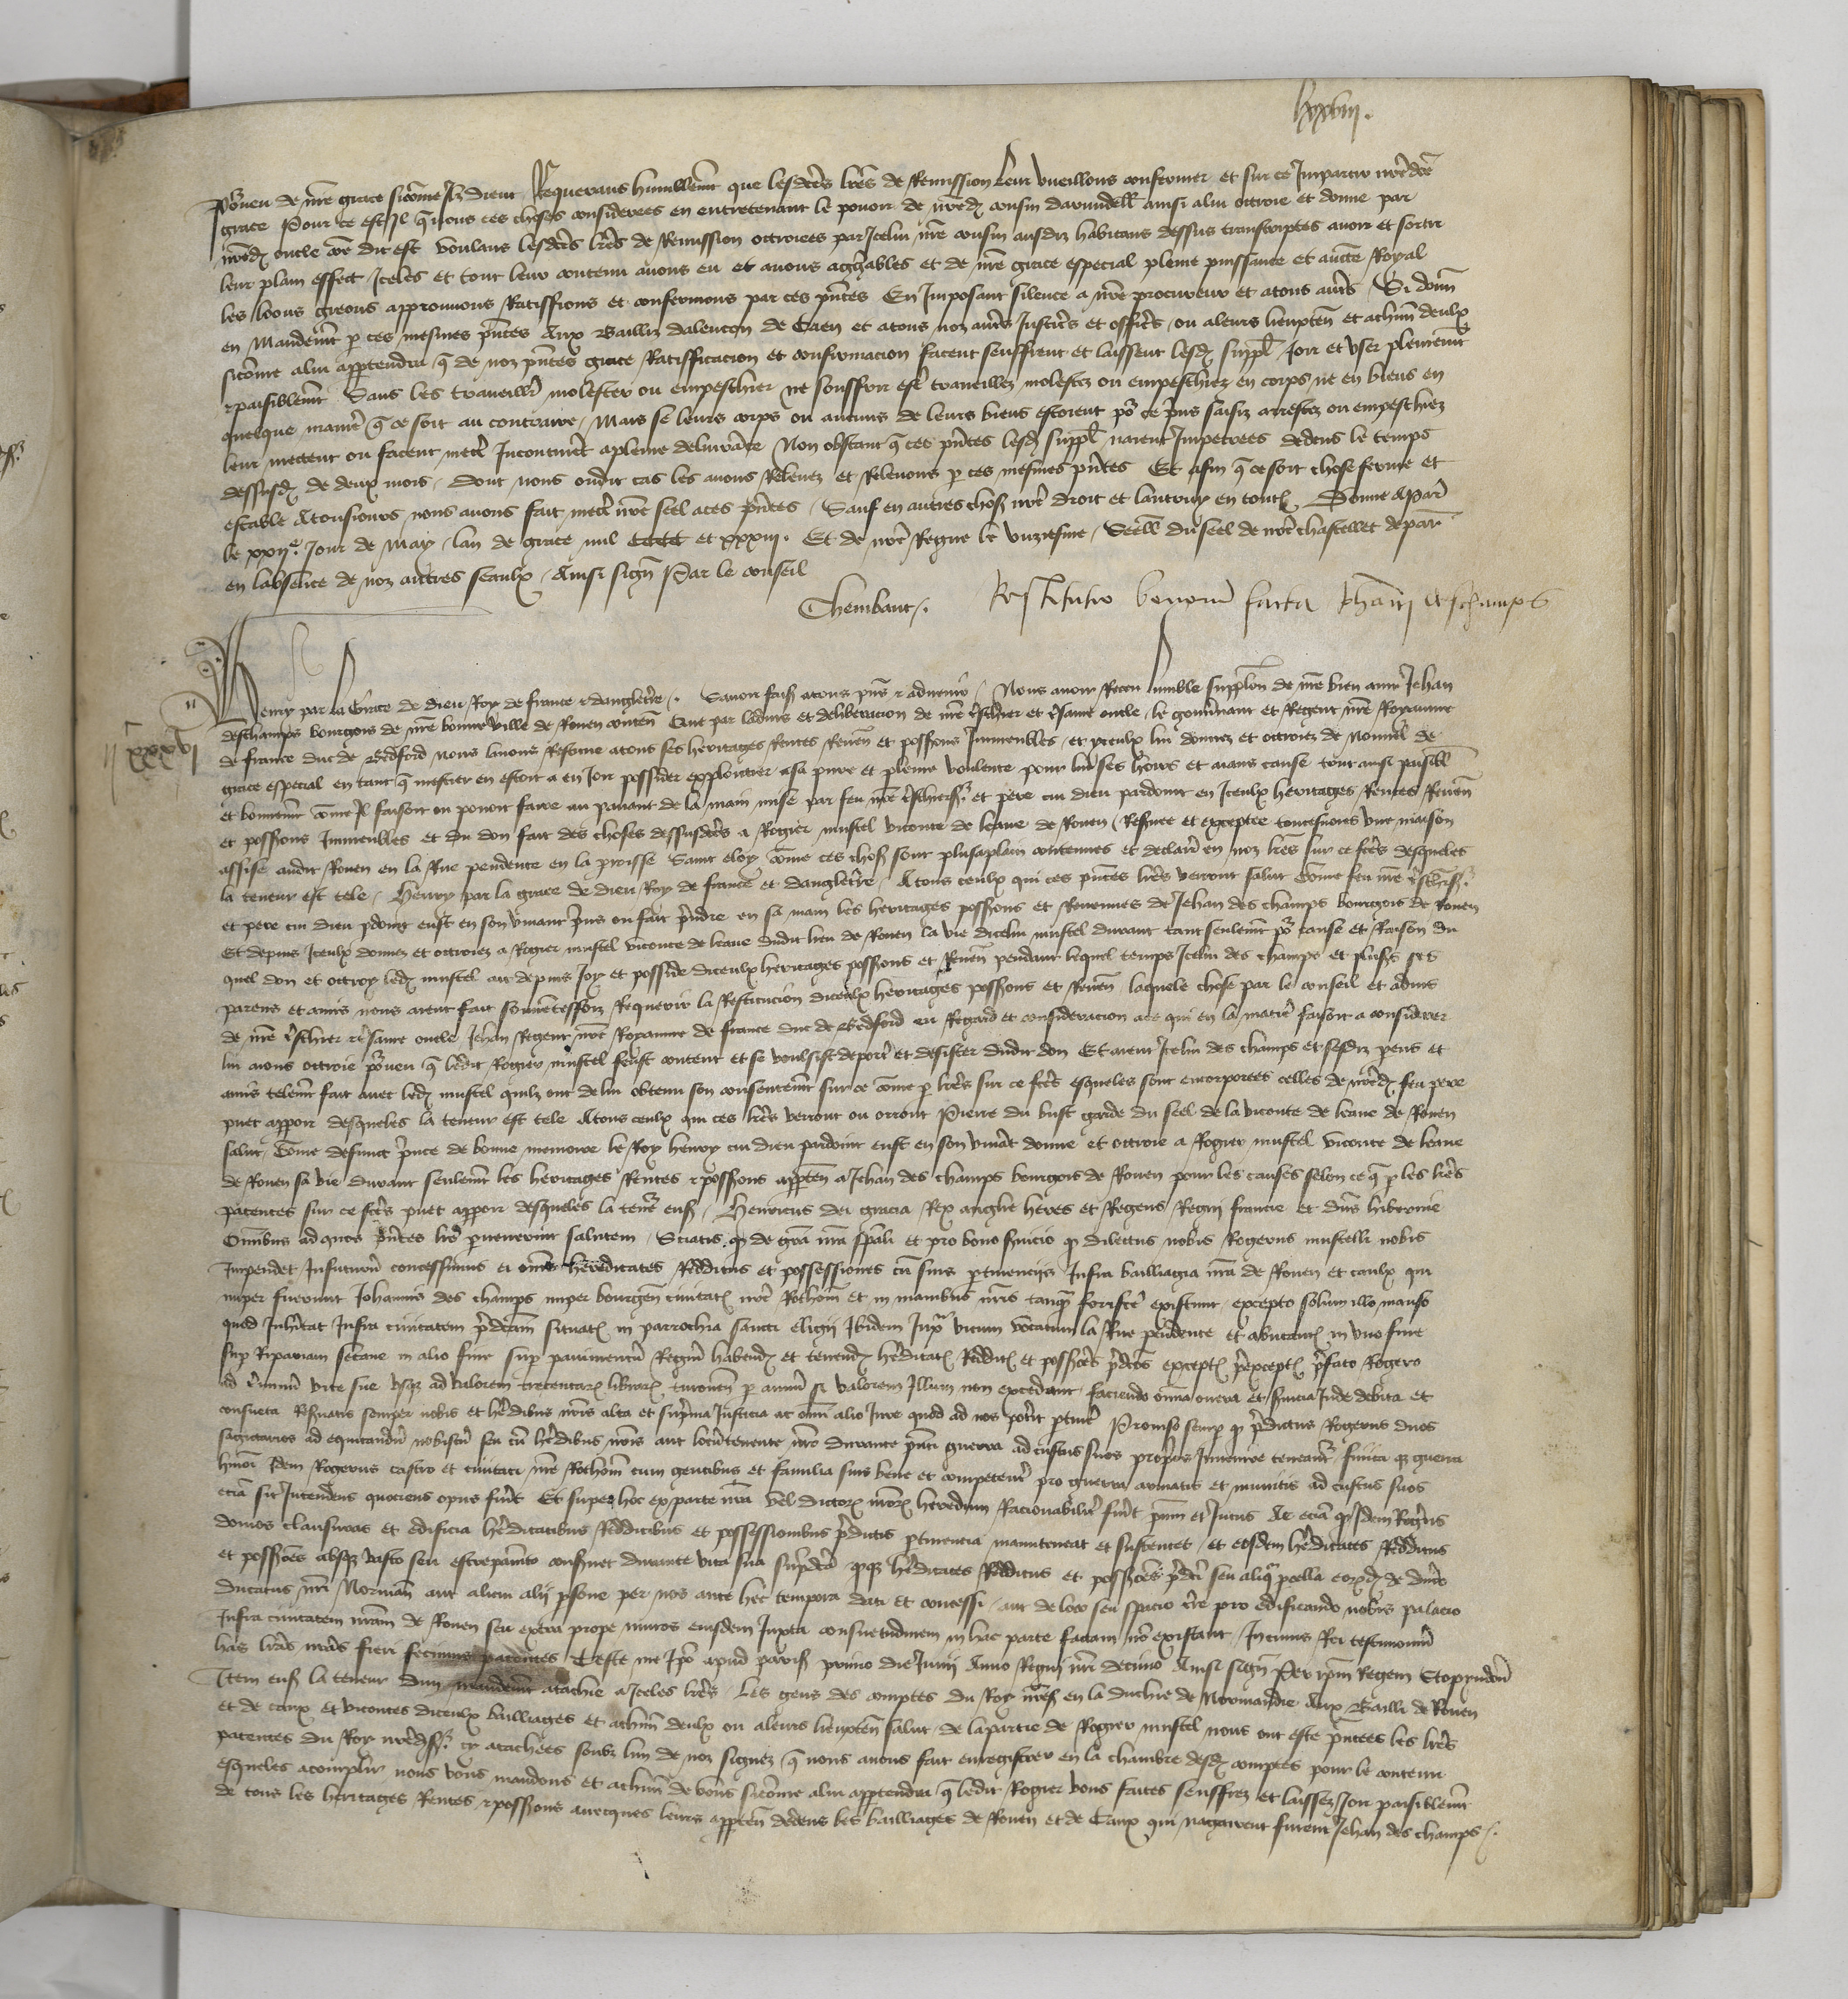 lxxviij.
pourveu de nre grace sicome Ilz dient Requerans humblemt que lesdctes lres de Remission leur vueillons confermer et sur ce Impartir nre dce
grace Pour ce est Il q nous ces choses considerees en entretenant le povoir de nredt cousin darundell ainsi alui octroie et donne par
nredt oncle come dit est voulans lesdctes lres de Remission octroiees par Icelui nre cousin ausdiz habitans dessus transcriptes avoir et sortir
leur plain effect Iceles et tout leur contenu avons eu et avons aggreables et de nre grace especial pleine puissance et aucte Royal
les loons greons approuvons Ratiffions et confermons par ces pntes En Imposant silence a nre procureur et atous aures Si donn
en Mandemt p ces mesmes pntes Aux Bailliz dalencon de Caen et atous noz aures Justices et offices ou aleurs lieuxten et achun deulx
sicome alui appartendra q de noz pntes grace Ratifficacion et confirmacion facent seuffrent et laissent lesd suppl Joir et user plenemt
et paisiblemt Sans les travaillr molester ou empeschier ne souffrir estre travaillez molestez ou empeschiez en corps ne en biens en
quelque manere q ce soit au contraire Mais se leurs corps ou aucuns de leurs biens estoient por ce prins saisiz arrestez ou empeschiez
leur mectent ou facent mectre Incontinet apleine delivrance Non obstant q ces pntes lesd suppl naient Impetrees dedens le temps
dessusd de deux mois dont nous oudit cas les avons Relevez et Relevons p ces mesmes pntes Et afin q ce soit chose ferme et
estable Atousiours nous avons fait mectre nre seel aces pntes Sauf en autres choses nre droit et lautruy en toutes Donne APar
le xxije Jour de May lan de grace mil cccc et xxxiij. Et de nre Regne le unziesme Seelle du seel de nre chastellet de par
en labsence de noz autres seaulx Ainsi signe Par le conseil
Thembaut.
Restitutio bonorum facta Johanni deschamps
ij c xxxvj
Henry par la Grace de dieu Roy de france et dangleterre. Savoir faisons atous pns et advenir Nous avoir Receu humble supplon de nre bien ame Jehan
deschamps bourgois de nre bonne ville de Rouen conten Que par ladvis et deliberacion de nre treschier et tresame oncle le gouvernant et Regent nre Royaume
de france duc de Bedford nous lavons Restitue atous ses heritages Rentes Reven et possessions Immeubles et yceulx lui donnez et octroiez de nouvel de
grace especial en tant q mestier en estoit a en Joir posseder exploictier asa pure et pleine voulente pour lui ses hoirs et aians cause tout ainsi paisibl
et bonnemt come Il faisoit ou povoit faire au paravant de la main mise par feu nre treschier sr et pere cui dieu pardoint en Iceulx heritages Rentes Reven
et possions Immeubles et du don fait des choses dessusdctes a Rogier mustel viconte de leaue de Rouen Reservee et exceptee touteffois une maison
assise audit Rouen en la Rue pendente en la prisse Saint eloy come ces choses sont plusaplain contenues et declarees en noz lres sur ce fctes desqueles
la teneur est tele Henry par la grace de dieu Roy de france et dangleterre Atous ceulx qui ces pntes lres verront salut Come feu nre treschier sr
et pere cui dieu pdoint eust en son vivant prins ou fait prendre en sa main les heritages possions et Revenues de Jehan des champs bourgois de Rouen
Et depuis Iceulx donnez et octroiez a Rogier mustel viconte de leaue dudit lieu de Rouen la vie dicelui mustel durant tant seulemt por cause et Raison du
quel don et octroy ledt mustel ait depuis Joy et posside diceulx heritages possions et Reven pendant lequel temps Icelui des champs et plusrs ses
parens et amis nous aient fait souventesfoiz Requerir la Restitucion diceulx heritages possions et Reven laquele chose par le conseil et advis
de nre treschier et tresame oncle Jehan Regent nre Royaume de france duc de Bedford eu Regard et consideracion ace qui en la matere faisoit a considerer
lui aions octroie pourveu q ledit Rogier mustel feust content et se voulsist deporter et desister dudit don Et aient Icelui des champs et sesdiz pens et
amis telemt fait avec ledt mustel quilz ont de lui obtenu son consentemt sur ce come p lres sur ce fctes esqueles sont encorporees celles de nredt feu pere
puet apparoir desqueles la teneur est tele Atous ceulx qui ces lres verront ou orront Pierre du bust garde du seel de la viconte de leaue de Rouen
salut Come defunct prince de bonne memoire le Roy henry cui dieu pardoint eust en son vivat donne et octroie a Rogier mustel viconte de leaue
de Rouen sa vie durant seulemt les heritages Rentes et possions apprten a Jehan des champs bourgois de Rouen pour les causes selon ce q p les lres
patentes sur ce fctes puet apparoir desqueles la teneur ensuit Henricus dei gracia Rex anglie heres et Regens Regni francie et dns hibernie
Omnibus ad quos pntes lre pervenerint salutem Sciatis qd de gra nra spali et pro bono servicio qd dilectus nobis Rogerus mustelli nobis
Impendet Infuturum concessimus ei omes hereditates Redditus et possessiones cu suis ptinencijs Infra bailliagia nra de Rouen et caulx qui
nuper fuerunt Johannis des champs nuper bourgen civitatis nre Rothom et in manibus nris tanqm forisfce existunt excepto solum illo manso
quod Inhitat Infra civitatem pdcam situat in parrochia sancti eligij Ibidem Juxa vicum vocatum la Rue pendente et abutant in uno fine
sup Ripariam secane in alio fine sup pavimentu Regiu habend et tenend hereditat Reddit et possiões pdcas except preexcept prefato Rogero
ad tminu vite sue usqz ad valorem trecentarum librarum turonen p annu si valorem Illum non excedant faciendo omia onera et servicia Inde debita et
consueta Reservatis semper nobis et heredibus nris alta et suprema Justicia ac omi alio Jure quod ad nos potit ptine Proviso semp qd pdictus Rogerus duos
sagittarios ad equitandu nobiscu seu cu heredibus nris aut locutenente nro durante pnti guerra ad custus suos proprios Invenire teneatur finita qz guerra
hmoi Idem Rogerus castro et civitati nre Rothom cum gentibus et familia suis bene et competenter pro guerra armatis et munitis ad custus suos
etia sit Intendens quociens opus fuit Et super hoc ex parte nra vel dictor nror heredum Racionabiliter fuit pmu et Jutus Ac etia qd Idem Rogerus
domos clausuras et edificia hereditatibus Redditibus et possessionibus pdictis ptinencia manuteneat et sustentet et eosdem hereditates Redditus
et possiões absqz vasto seu estrepamento conservet durante vita sua supradca qqz hereditates Redditus et possiões pdci seu aliqa pcella eorumd de dnio
ducatus nri Norman aut alicui alij psone per nos ante hec tempora dati et concessi aut de loco seu spacio terre pro edificando nobis palacio
Infra civitatem nram de Rouen seu extra prope muros eiusdem Juxta consuetudinem in hac parte factam no existant In cuius Rei testimoniu
has lras nras fieri fecimus patentes Teste me Ipo apud paris primo die Junij Anno Regni nri decimo Ainsi signe Per ipm Regem Stopyndon
Item ensuit la teneur dun mandemt atachie a Iceles lres Les gens des comptes du Roy nresr en la duchie de Normandie Aux Bailli de Rouen
et de caux et vicontes diceulx bailliages et achun deulx ou aleurs lieuxten salut de la partie de Rogier mustel nous ont este pntees les lres
patentes du Roy nredsr cy atachees soubz lun de noz signez q nous avons fait enregistrer en la chambre desd comptes pour le contenu
esqueles acomplir nous vous mandons et achun de vous sicome alui appartendra q ledit Rogier vous faites seuffrez et laissez Joir paisiblemt
de tous les heritages Rentes et possions avecques leurs apprten dedens les bailliages de Rouen et de Caux qui nagaires furent Jehan des champs.